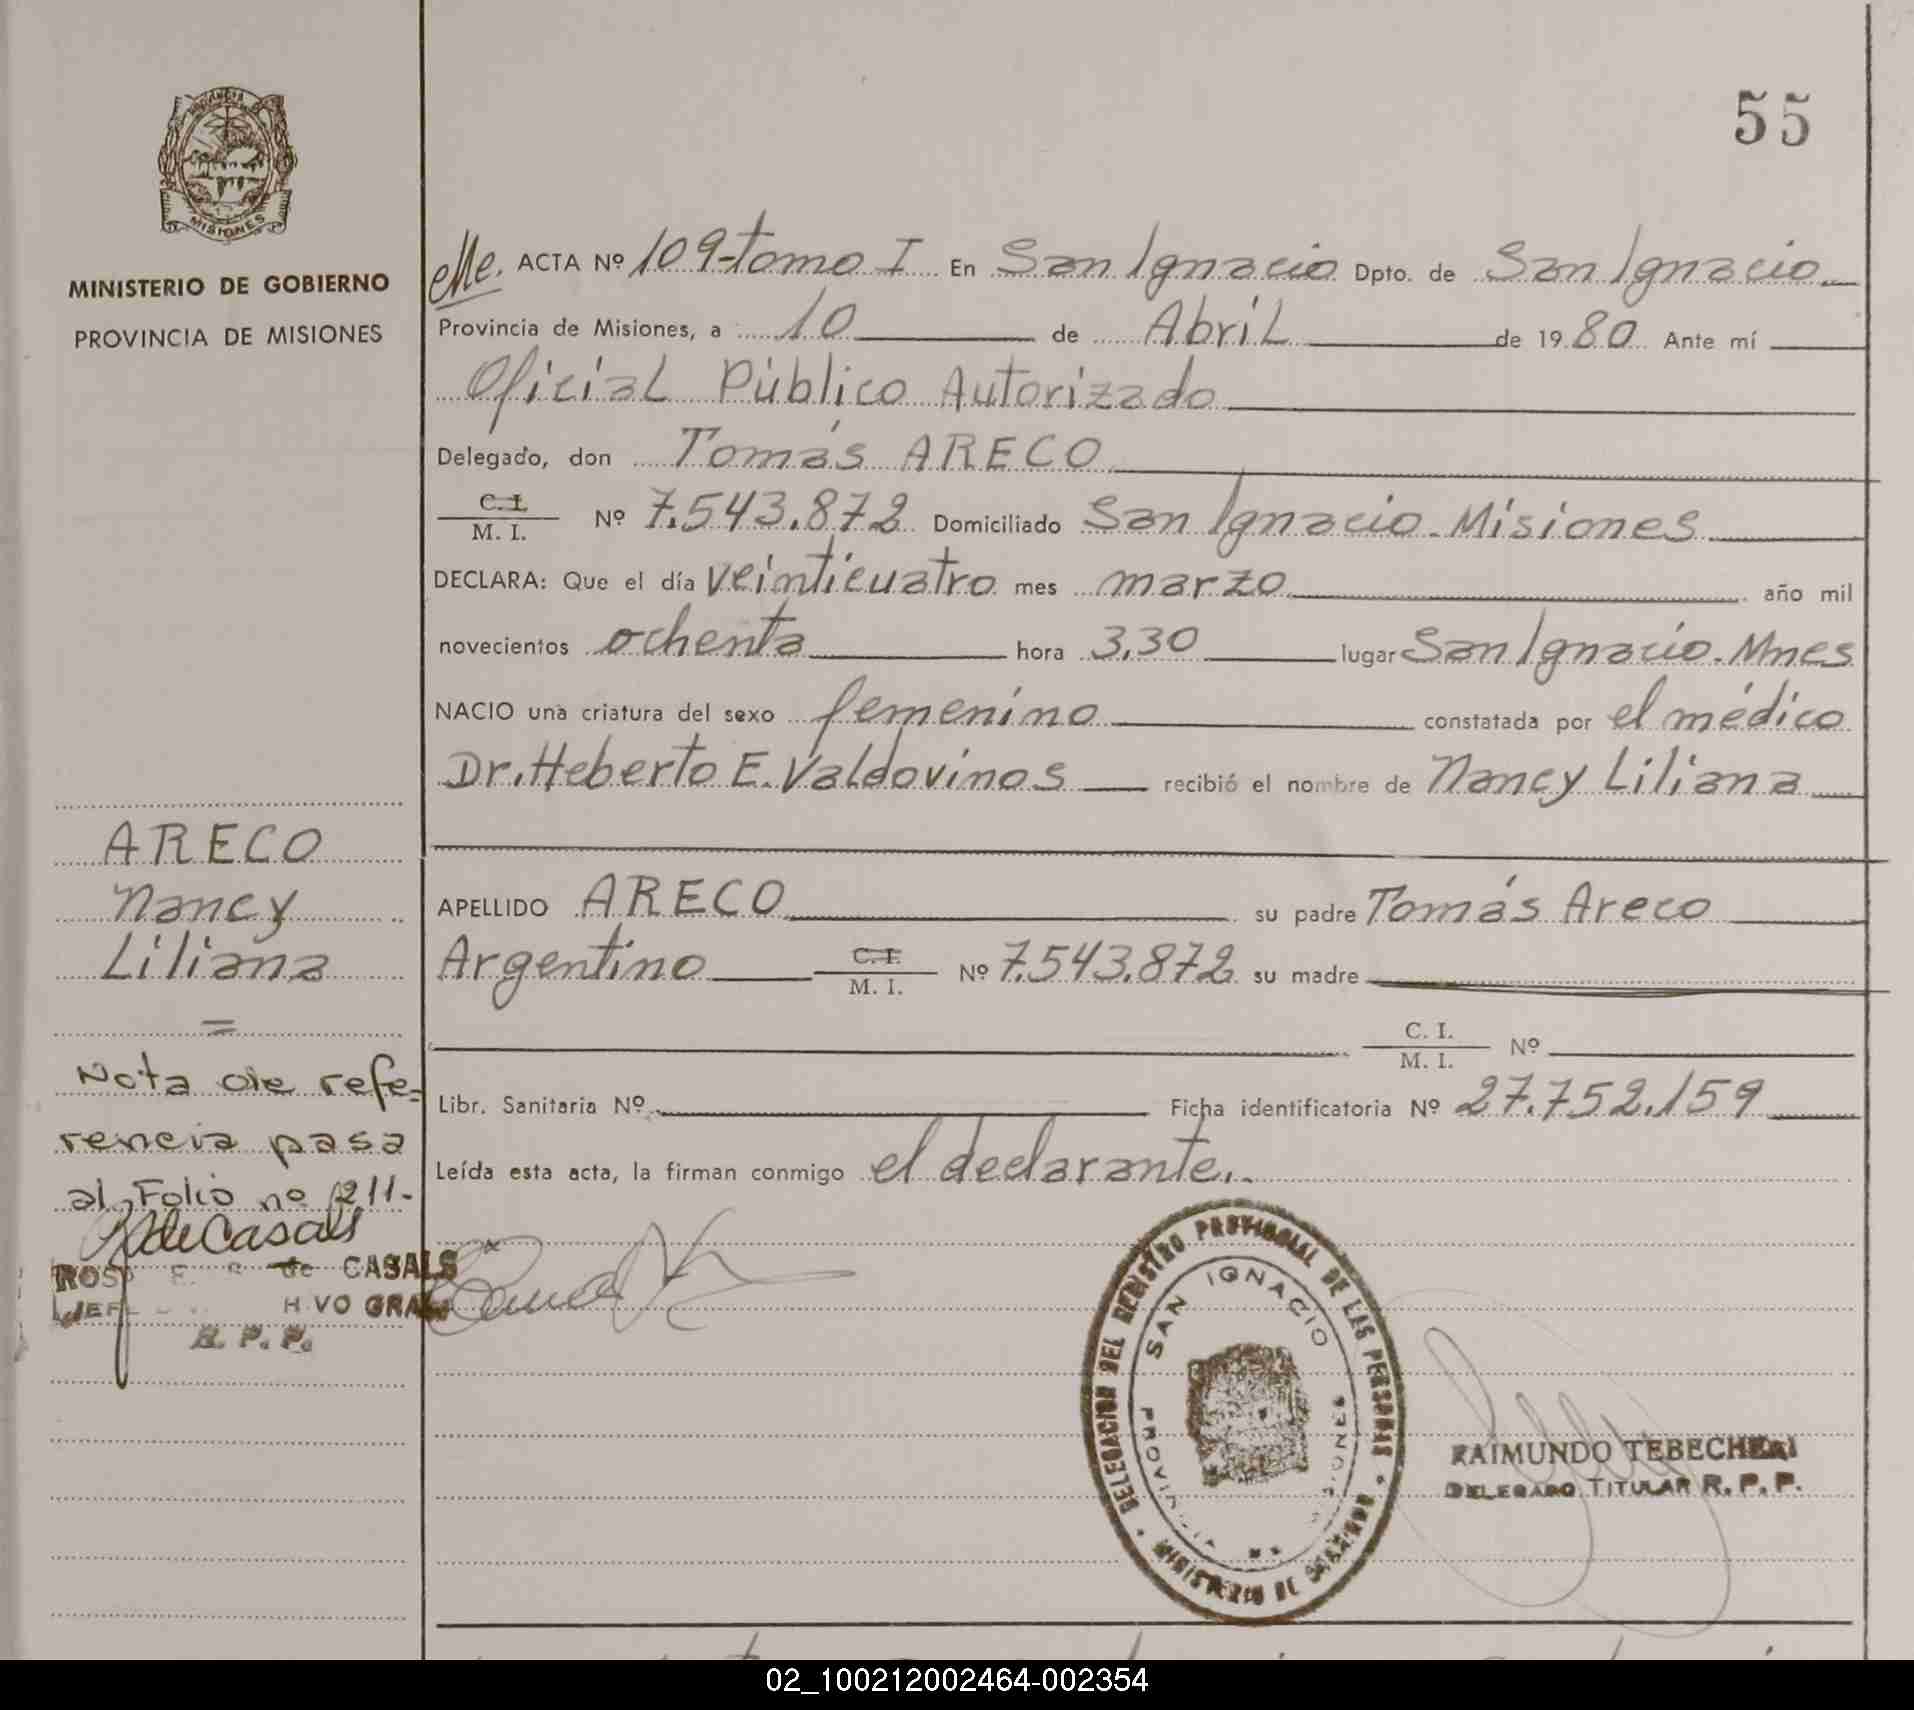 55
PROVINCIA DE
MISIONES
MINISTERIO DE GOBIERNO
PROVINCIA DE MISIONES
ACTA Nº 109-tomo I En San Ignacio Dpto. de San Ignacio
Provincia de Misiones, a 10 de Abril de 1980 Ante mí
Oficial Público Autorizado
Delegado, don Tomás ARECO
C. I.
M. I. Nº 7.543.872 Domiciliado San Ignacio - Misiones
DECLARA: Que el día veinticuatro mes marzo año mil
novecientos ochenta hora 3,30 lugar San Ignacio - Mnes
NACIO una criatura del sexo femenino constatada por el médico
Dr. Heberto E. Valdovinos recibió el nombre de Nancy Liliana
APELLIDO ARECO su padre Tomás Areco
Argentino C. I.
M. I. Nº 7.543.872 su madre
C. I.
M. I. Nº
Libr. Sanitaria Nº Ficha identificatoria Nº 27.752.159
Leída esta acta, la firman conmigo el declarante.
ARECO
Nancy
Liliana
=
Nota de refe=
rencia pasa
al Folio nº 211-
de Casals
de CASALS
R. P. P.
DELEGACION DEL REGISTRO PROVINCIAL DE LAS PERSONAS
SAN IGNACIO
RAIMUNDO TEBECHERI
DELEGADO TITULAR R. P. P.
02_100212002464-002354